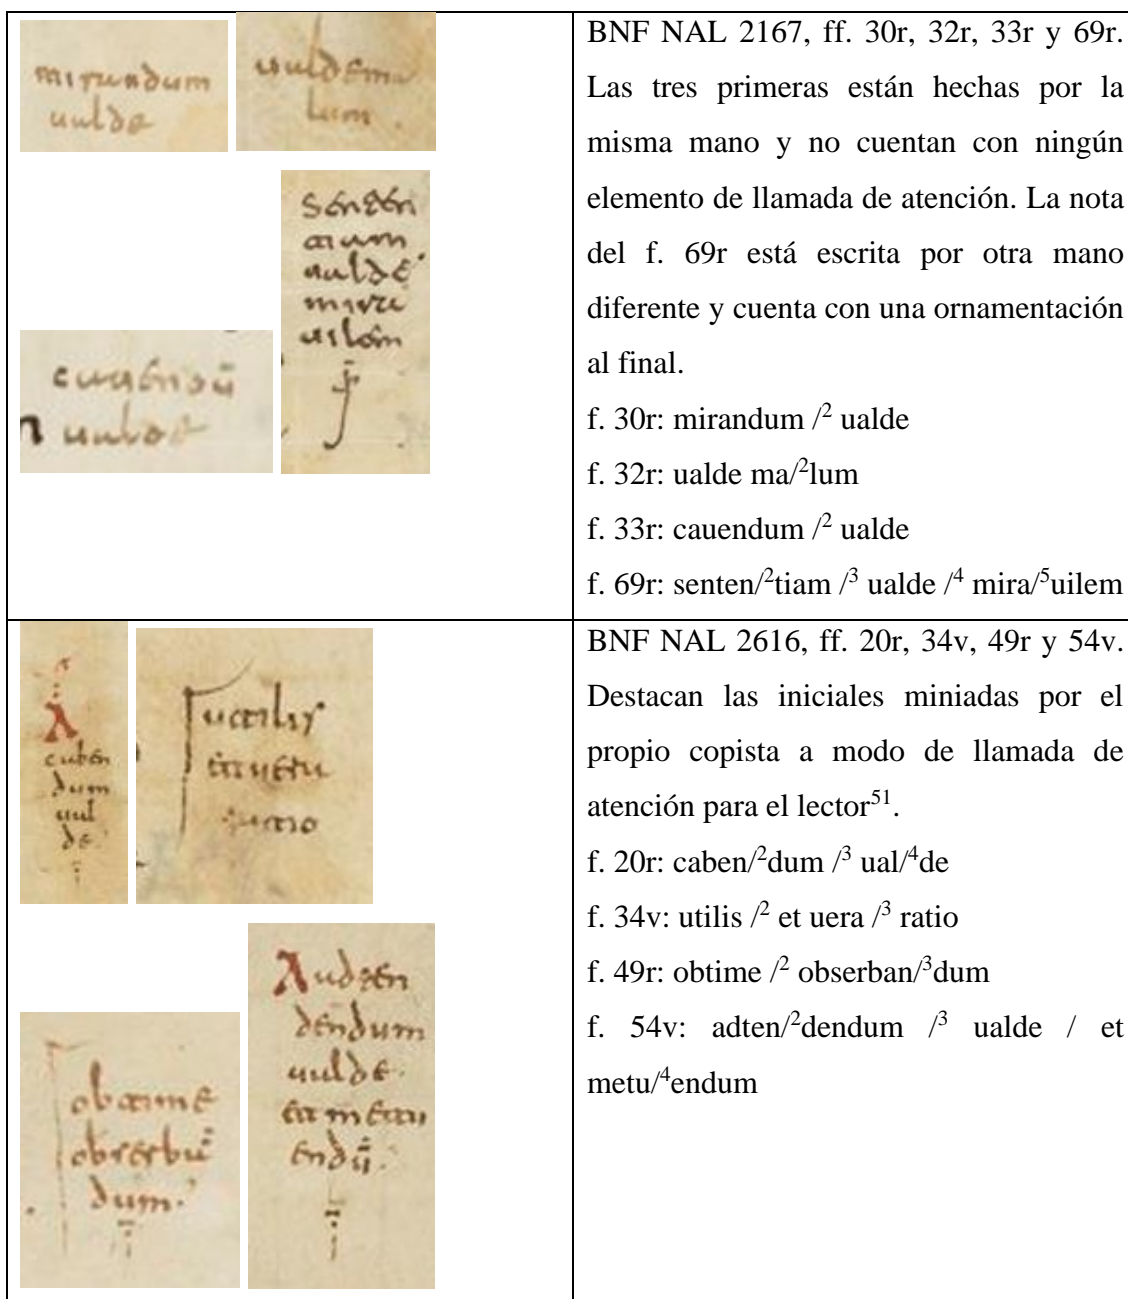 mirandum
ualde
ualde ma
lum
senten
tiam
ualde
mira
uilem
cauendū
ualde
BNF NAL 2167, ff. 30r, 32r, 33r y 69r.
Las tres primeras están hechas por la
misma mano y no cuentan con ningún
elemento de llamada de atención. La nota
del f. 69r está escrita por otra mano
diferente y cuenta con una ornamentación
al final.
f. 30r: mirandum /² ualde
f. 32r: ualde ma/²lum
f. 33r: cauendum /² ualde
f. 69r: senten/²tiam /³ ualde /⁴ mira/⁵uilem
caben
dum
ual
de
utilis
et uera
ratio
obtime
obserbā
dum
Adten
dendum
ualde
et metu
endū
BNF NAL 2616, ff. 20r, 34v, 49r y 54v.
Destacan las iniciales miniadas por el
propio copista a modo de llamada de
atención para el lector⁵¹.
f. 20r: caben/²dum /³ ual/⁴de
f. 34v: utilis /² et uera /³ ratio
f. 49r: obtime /² obserban/³dum
f. 54v: adten/²dendum /³ ualde / et
metu/⁴endum